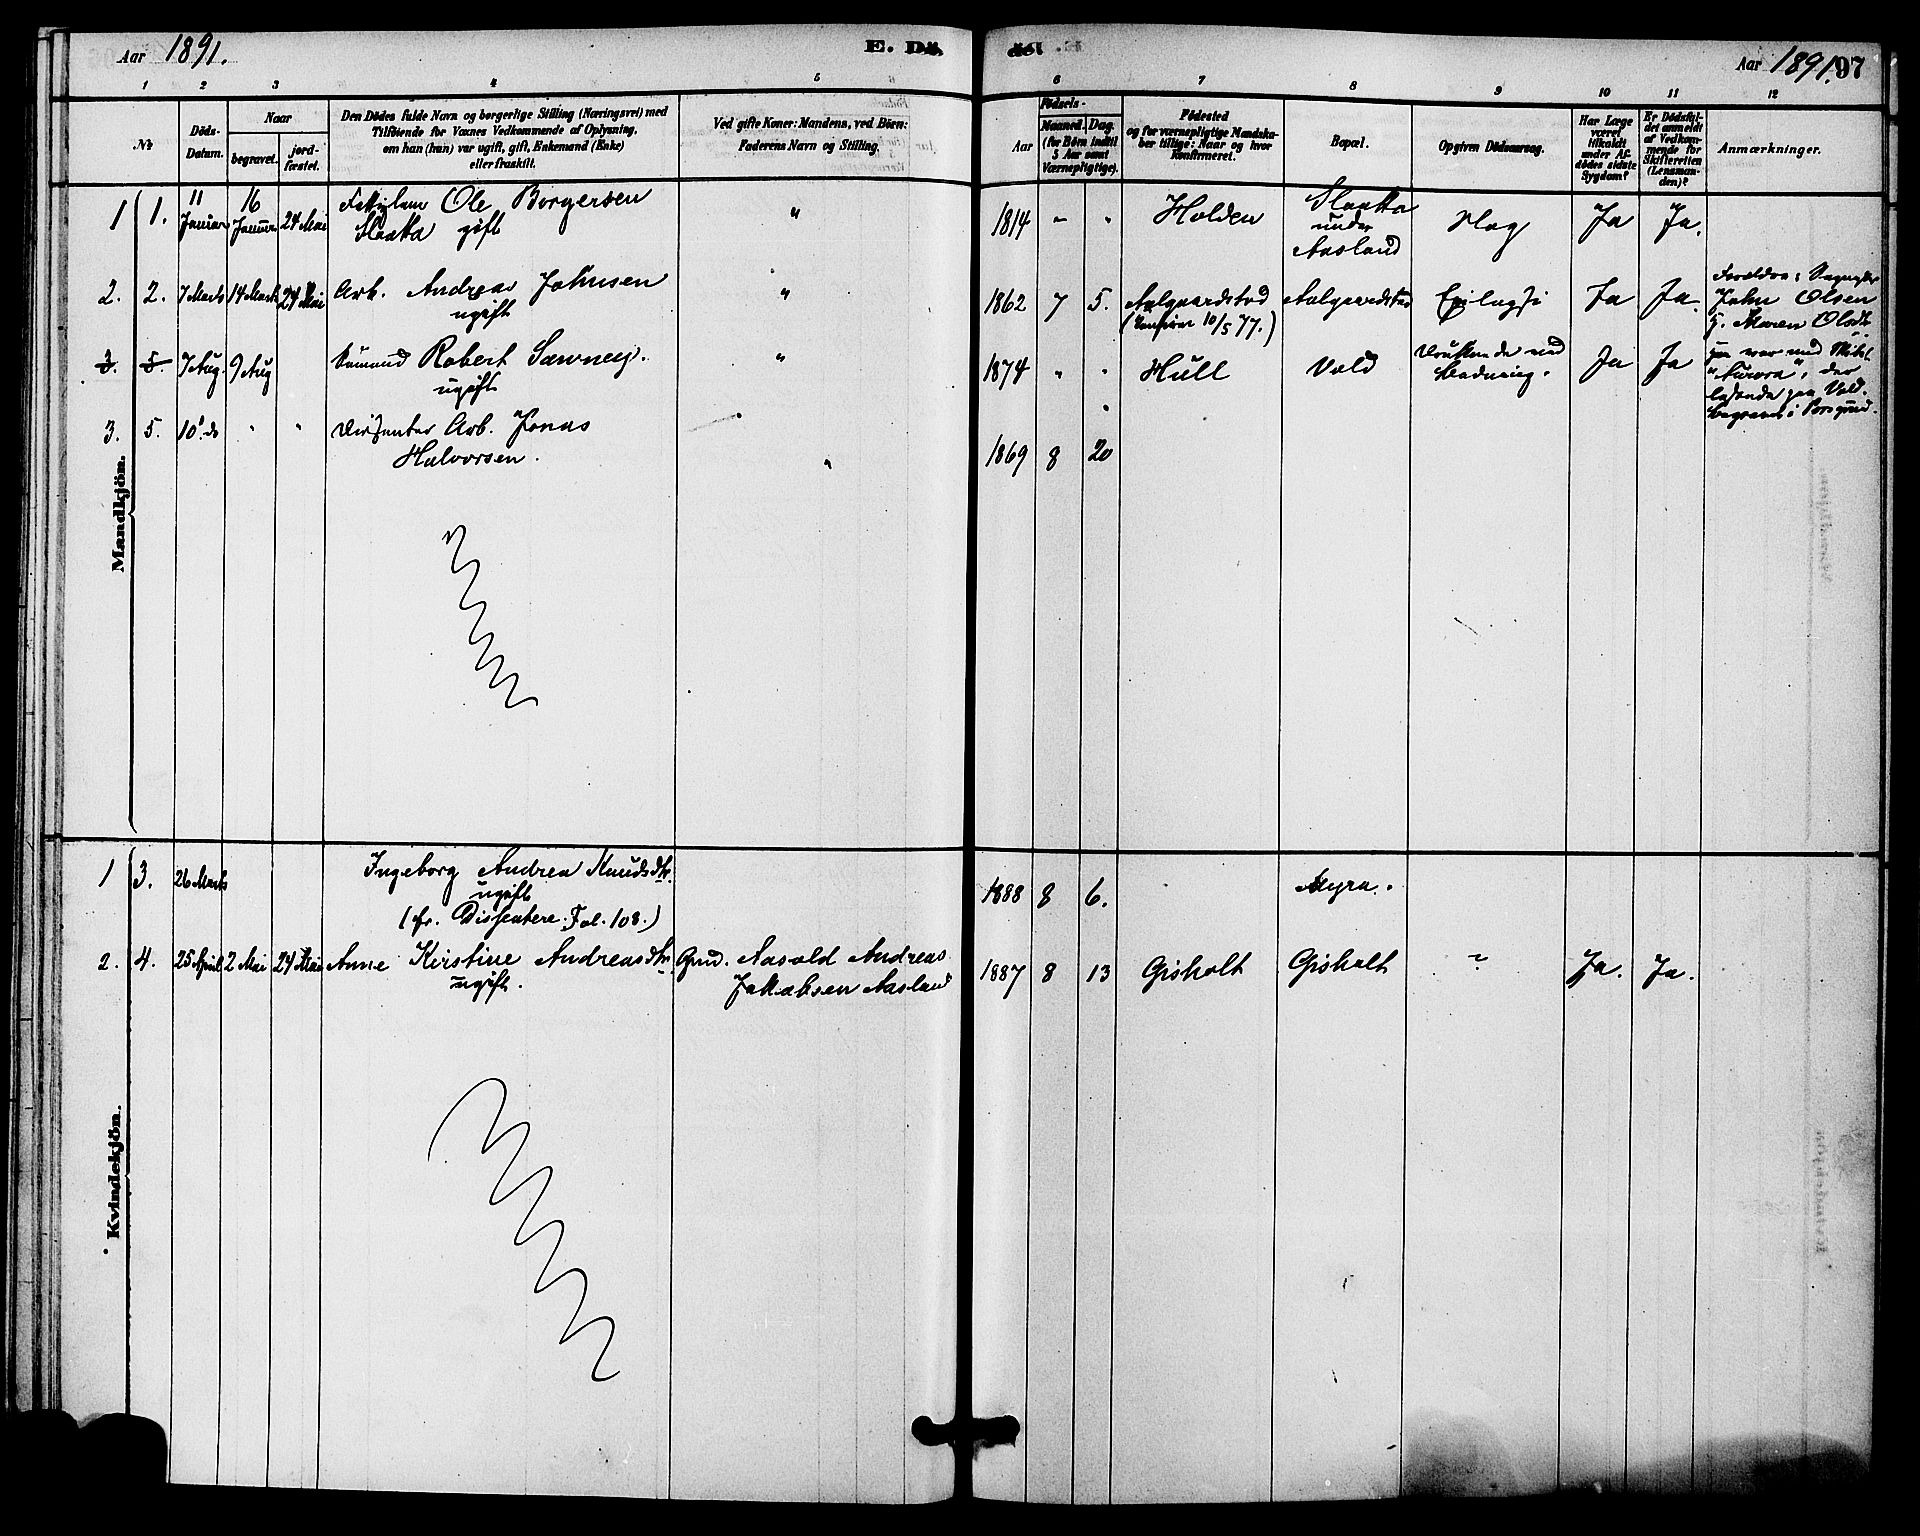 Aar 1891.
E. Dö-
1 2 3 4 5
№
Döds-
Datum.
Naar
begravet.
jord-
fæstet.
Den Dödes fulde Navn og borgerlige Stilling (Næringsvei) med
Tilföiende for Voxnes Vedkommende af Oplysning,
om han (hun) var ugift, gift, Enkemand (Enke)
eller fraskilt.
Ved gifte Koner: Mandens, ved Börn:
Faderens Navn og Stilling.
Mandkjön.
1 1. 11 Januar 16 Januar 24 Mai
Ole Borgersen
Slaatta gift
"
2. 2. 7 Marts 14 Marts 24 Mai
Arb. Andreas Johnsen
ugift
"
3. 5. 7 Aug. 9 Aug
Sømand Robert Sawney.
ugift
"
3. 5. 10 do " "
Dissenter Arb. Jonas
Halvorsen.
"
Kvindekjön.
1 3. 26 Marts
Ingeborg Andrea Knudsdtr.
ugift
(fr. Dissentere. Fol. 108.)
2. 4. 25 April 2 Mai 24 Mai
Anne Kirstine Andreasdtr
ugift.
Grd. Aasold Andreas
Jakobsen Aasland
öde.
Aar 1891. 97
6 7 8 9 10 11 12
Aar
Födsels-
Maaned. Dag.
(for Börn indtil
5 Aar samt
Værnepligtige).
Födested
og for værnepligtige Mandska-
ber tillige: Naar og hvor
Konfirmeret.
Bopæl.
Opgiven Dödsaarsag.
Har Læge
været
tilkaldt
under Af-
dödes sidste
Sygdom?
Er Dödsfal-
det anmeldt
af Vedkom-
mende for
Skifteretten
(Lensman-
den)?
Anmærkninger.
1814 " " Holden
Slaatta
under
Aasland
Slag Ja Ja.
1862 7 5. Aalgaardstad
(Konfirm 10/5 77.)
Aalgaardstad Epilepsi Ja Ja.
Forældre:
John Olsen
g. Maren Olsdtr
1874 " " Hull Vold
Druknede ved
Badning.
Ja Ja
han var med Skibet
"Aurora", der
ladende paa Vold.
begravet i Porsgrund.
1869 8 20
1888 8 6. Myra.
1887 8 13 Gisholt Gisholt ? Ja. Ja.